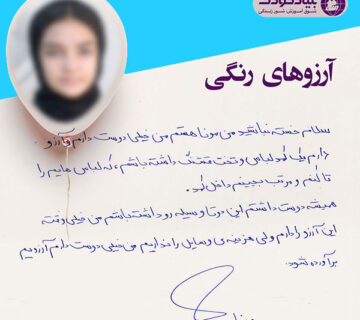 بنیاد کودک
شوق آموزش، شور زندگی
آرزوهای رنگی
سلام خسته نباشید من مونا هستم من خیلی دوست دارم و آرزو
دارم یک کمد لباس و تخت قشنگ داشته باشم، که لباس هایم را
تا کنم و مرتب بچینم داخل کمد.
همیشه دوست داشتم این دوتا وسیله رو داشته باشم من خیلی وقته
این آرزو را دارم ولی هزینه ی وسایل را نداریم من خیلی دوست دارم آرزویم
برآورده شود.